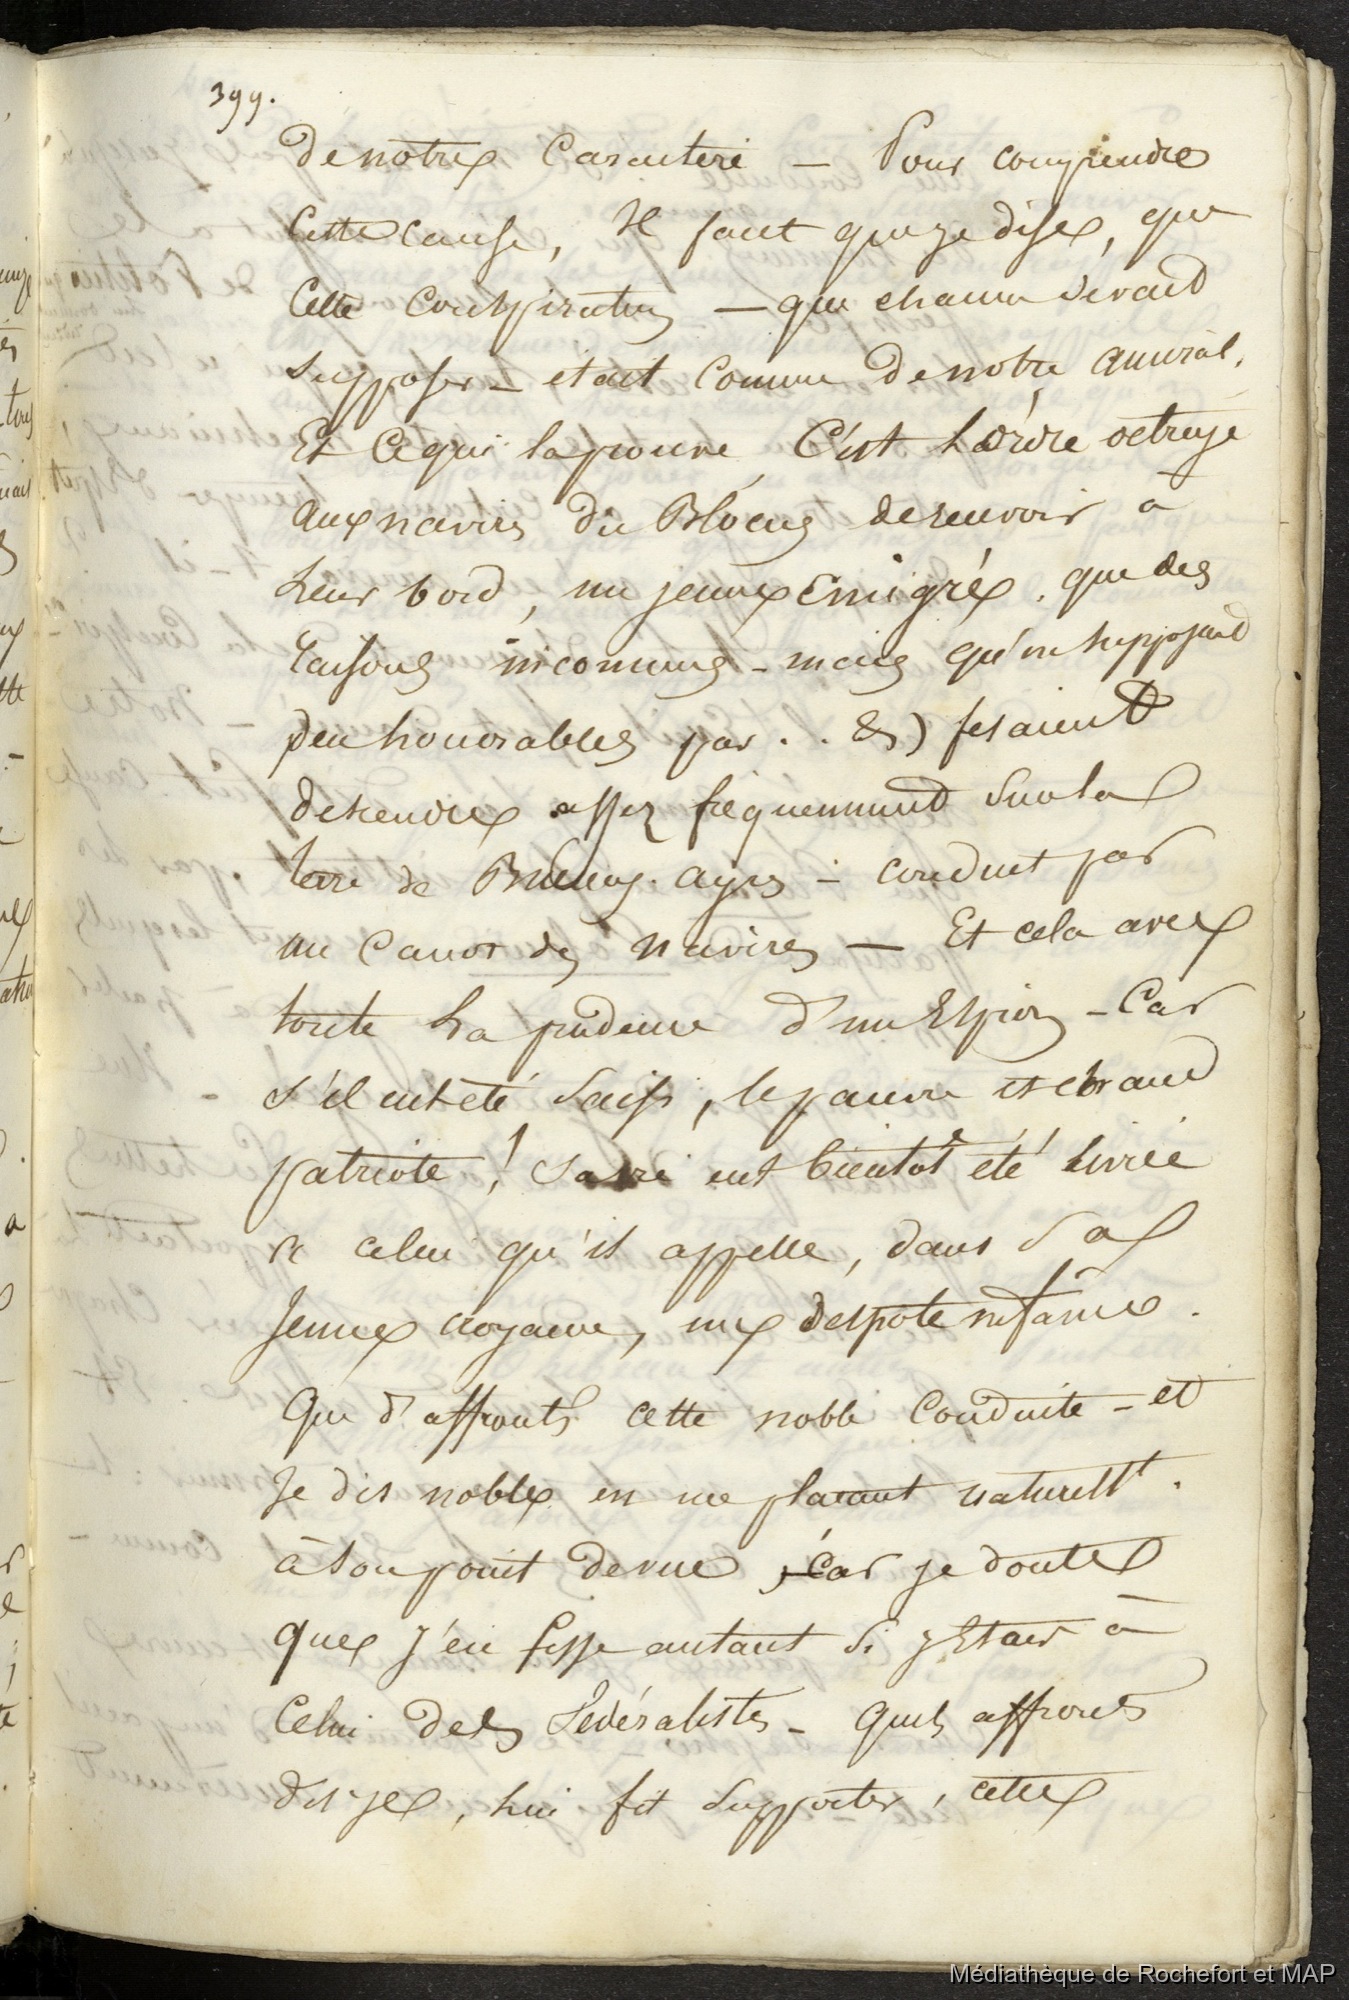 399.
de notre Caractere — Pour comprendre
Cette cause, Il faut que je dise, que
Cette Conspiration — que chacun devait
supposer — était Connue de notre amiral.
Et Cequi la prouve C'est L'ordre octroyé
aux navires du Blocus de recevoir à
leur bord, un jeune Emigré. que des
raisons inconnues — mais qu'on supposait
peu honorables par . . &) fesaient
descendre assez fréquemment sur la
terre de Buenos. ayres — conduit par
un Canot des navires — Et cela avec
toute la prudence d'un Espion — Car
s'il eut été saisi, le pauvre et chaud
patriote ! sa vie eut bientot été livrée
à celui qu'il appelle, dans sa
Jeune croyance, un despote infâme.
Que d'affronts cette noble Conduite — et
Je dis noble en me placant naturellt.
à son point de vue, car je doute
que j'en fisse autant si j'Etais à
Celui des Fédéralistes — Quels affronts
dis-je, lui fit supporter, cette
Médiathèque de Rochefort et MAP